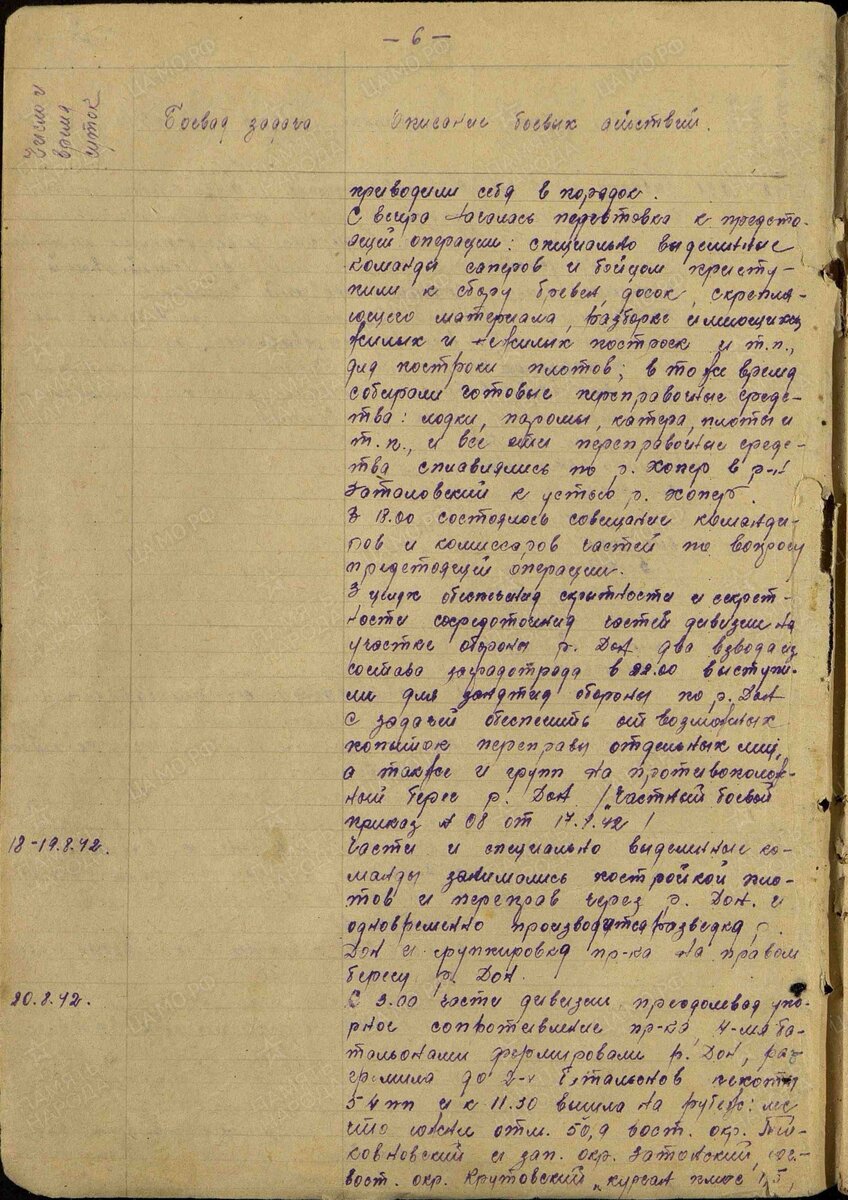 — 6 —
Число и
время
суток
Боевая задача
Описание боевых действий.
приводили себя в порядок.
С вечера началась подготовка к предсто-
ящей операции: специально выделенные
команды саперов и бойцом присту-
пили к сбору бревен, досок, скрепля-
ющего материала, разборке имеющихся
жилых и нежилых построек и т.п.,
для построки плотов; в то же время
собирали готовые переправочные средс-
тва: лодки, паромы, катера, плоты и
т.п., и все эти переправочные средс-
тва сплавлялись по р. Хопер в р-н
Заталовский к устью р. Хопер.
В 18.00 состоялось совещание команди-
ров и комиссаров частей по вопросу
предстоящей операции.
В целях обеспечения скрытности и секрет-
ности сосредоточения частей дивизии на
участке обороны р. Дон два взвода из
состава заградотряда в 22.00 выступи-
ли для занятия обороны по р. Дон
с задачей обеспечить от возможных
попыток переправы отдельных лиц,
а также и групп на противополож-
ный берег р. Дон /Частный боевой
приказ № 08 от 17.8.42/
18-19.8.42.
Части и специально выделенные ко-
манды занимались постройкой пло-
тов и переправ через р. Дон. и
одновременно производится разведка р.
Дон и группировка пр-ка на правом
берегу р. Дон.
20.8.42.
С 3.00 части дивизии, преодолевая упо-
рное сопротивление пр-ка, 4-мя ба-
тальонами формировали р. Дон, раз-
громила до 2-х батальонов пехоты
54 пп и к 11.30 вышла на рубеж:
южн отм. 50,9 вост. окр.
ковновский и зап. окр. Затонский,
вост. окр. Крутовский, курган плюс 1,5,
ЦАМО.РФ